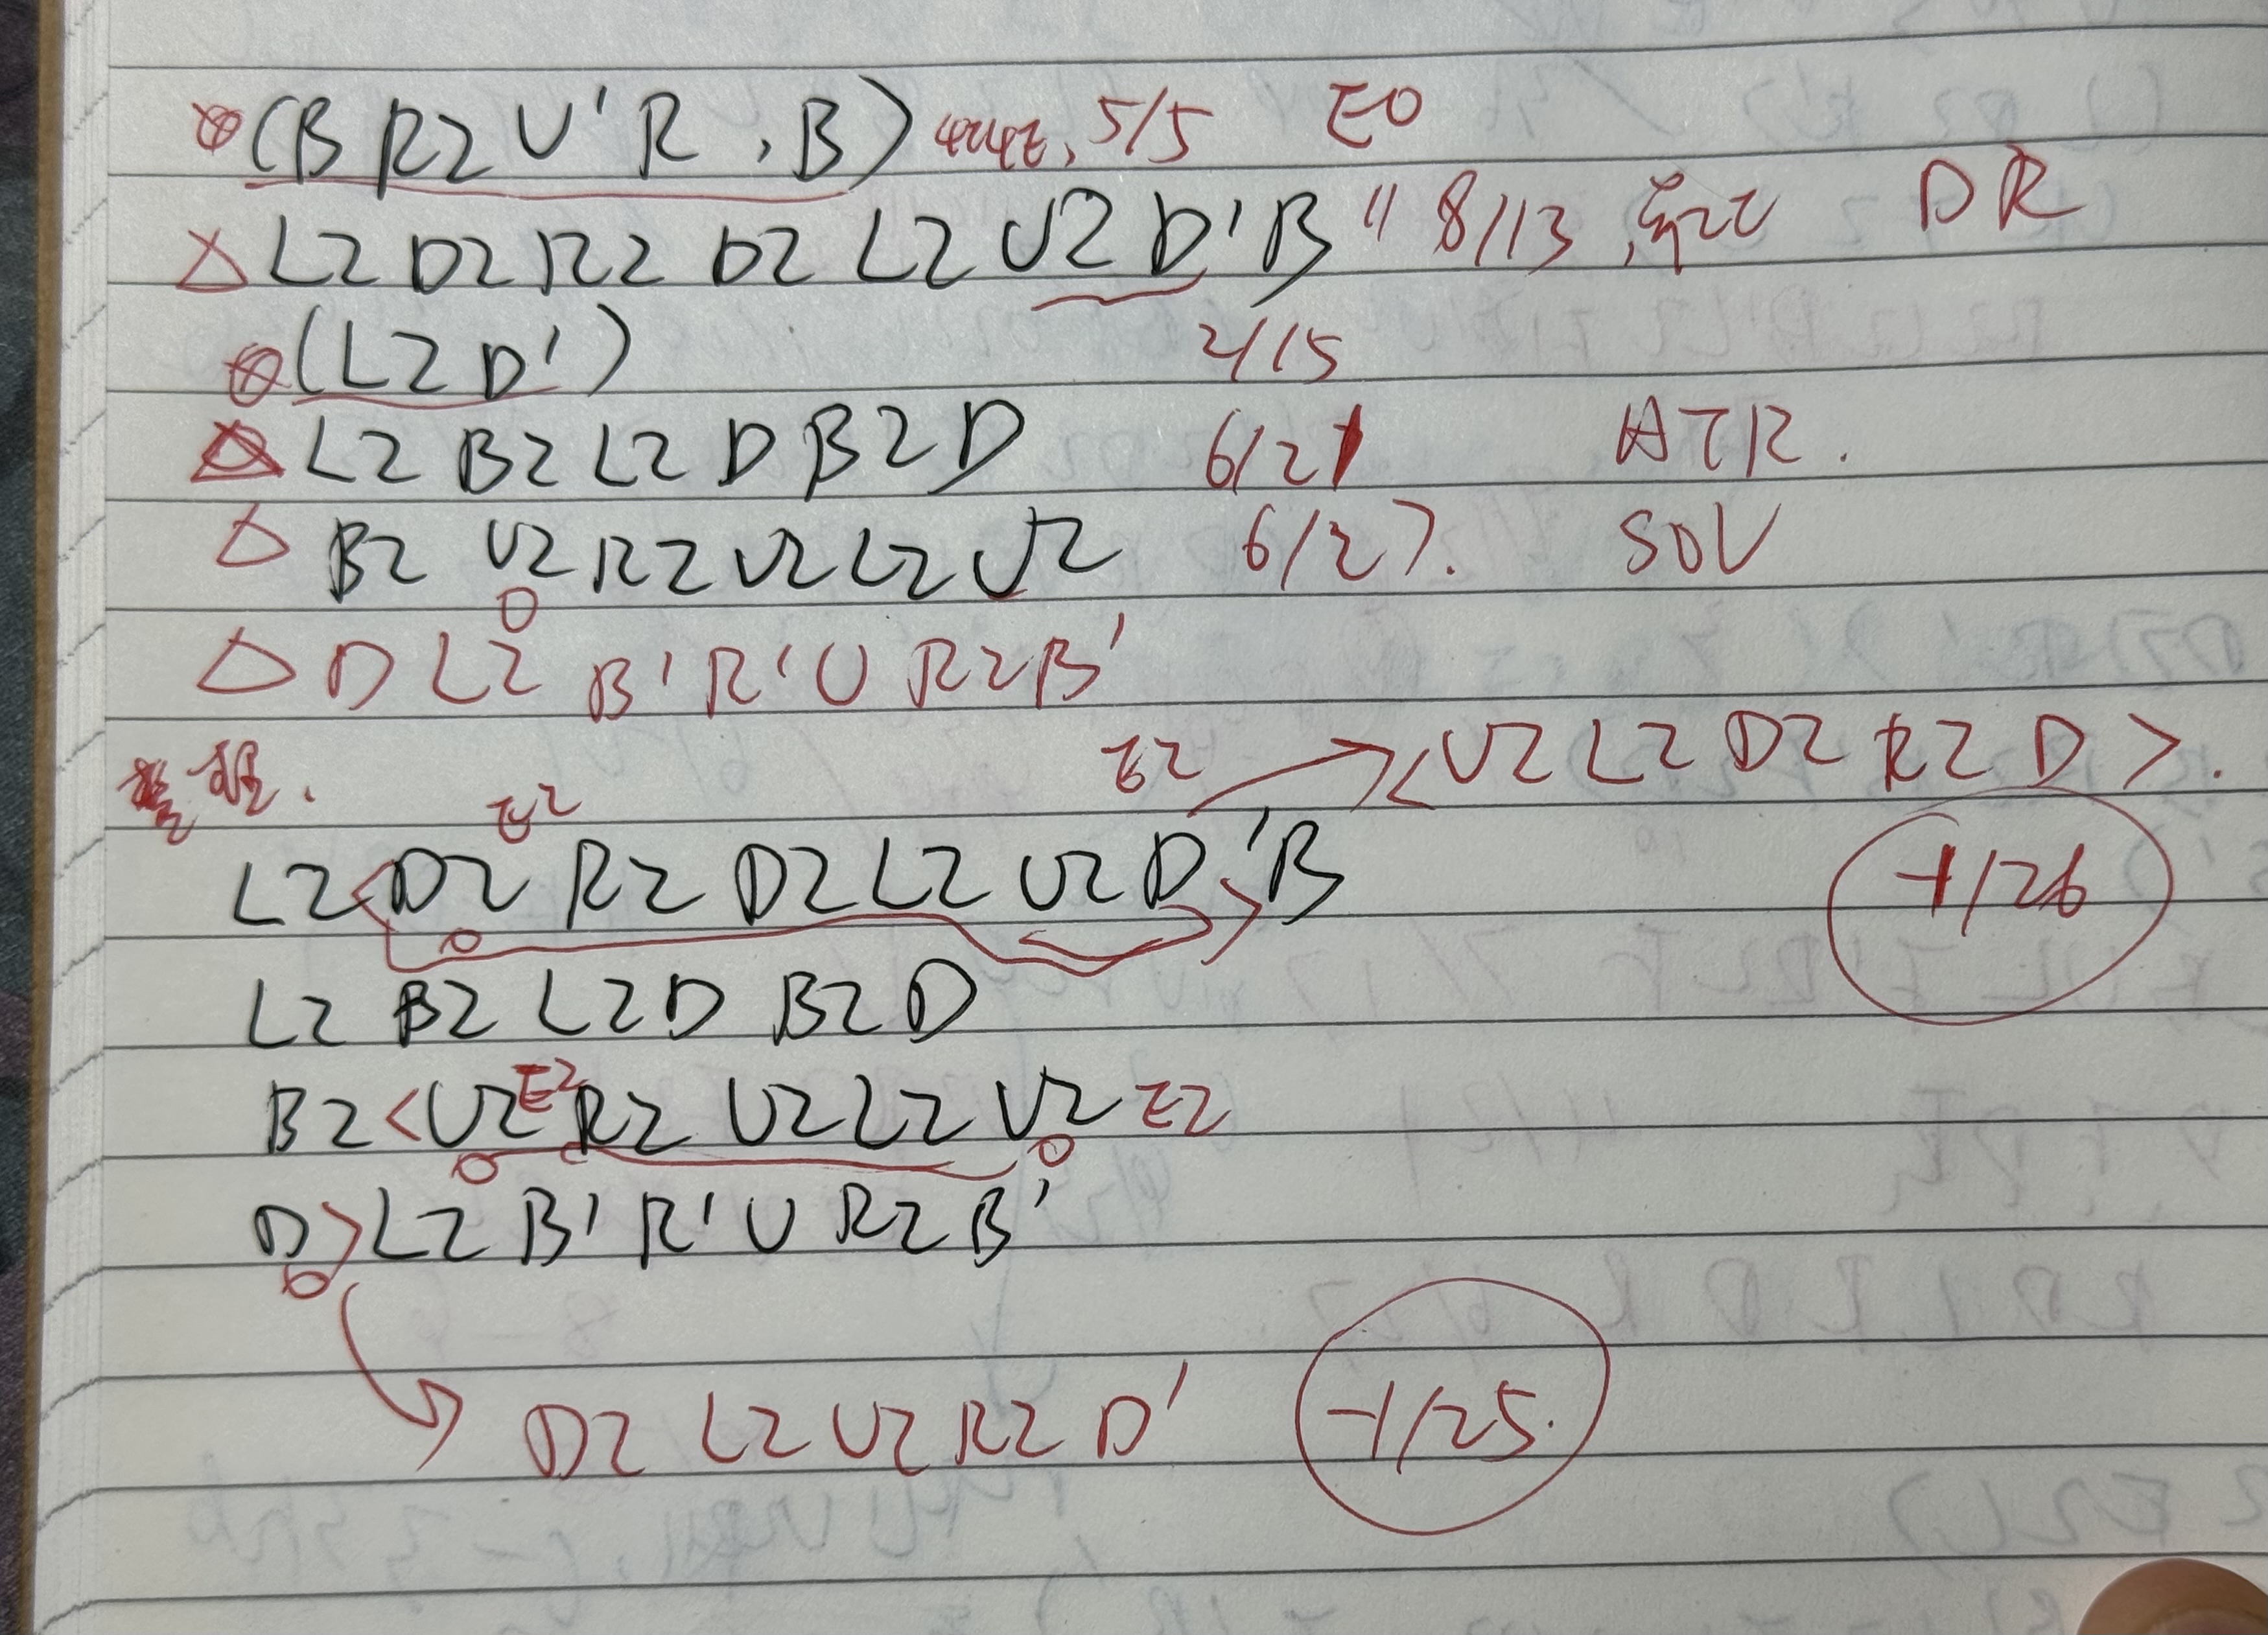 (B R2 U' R , B) 4c4e, 5/5 EO
△ L2 D2 R2 D2 L2 U2 D' B " 8/13 , DR
(L2 D') 2/15
△ L2 B2 L2 D B2 D 6/21 HTR.
△ B2 U2 R2 U2 L2 U2 6/27. SOV
△ D L2 B' R' U R2 B'
E2 <U2 L2 D2 R2 D>.
E2
L2 <D2 R2 D2 L2 U2 D'> B -1/26
L2 B2 L2 D B2 D
B2 <U2 E2 R2 U2 L2 U2 E2
D> L2 B' R' U R2 B'
D2 L2 U2 R2 D' -1/25.